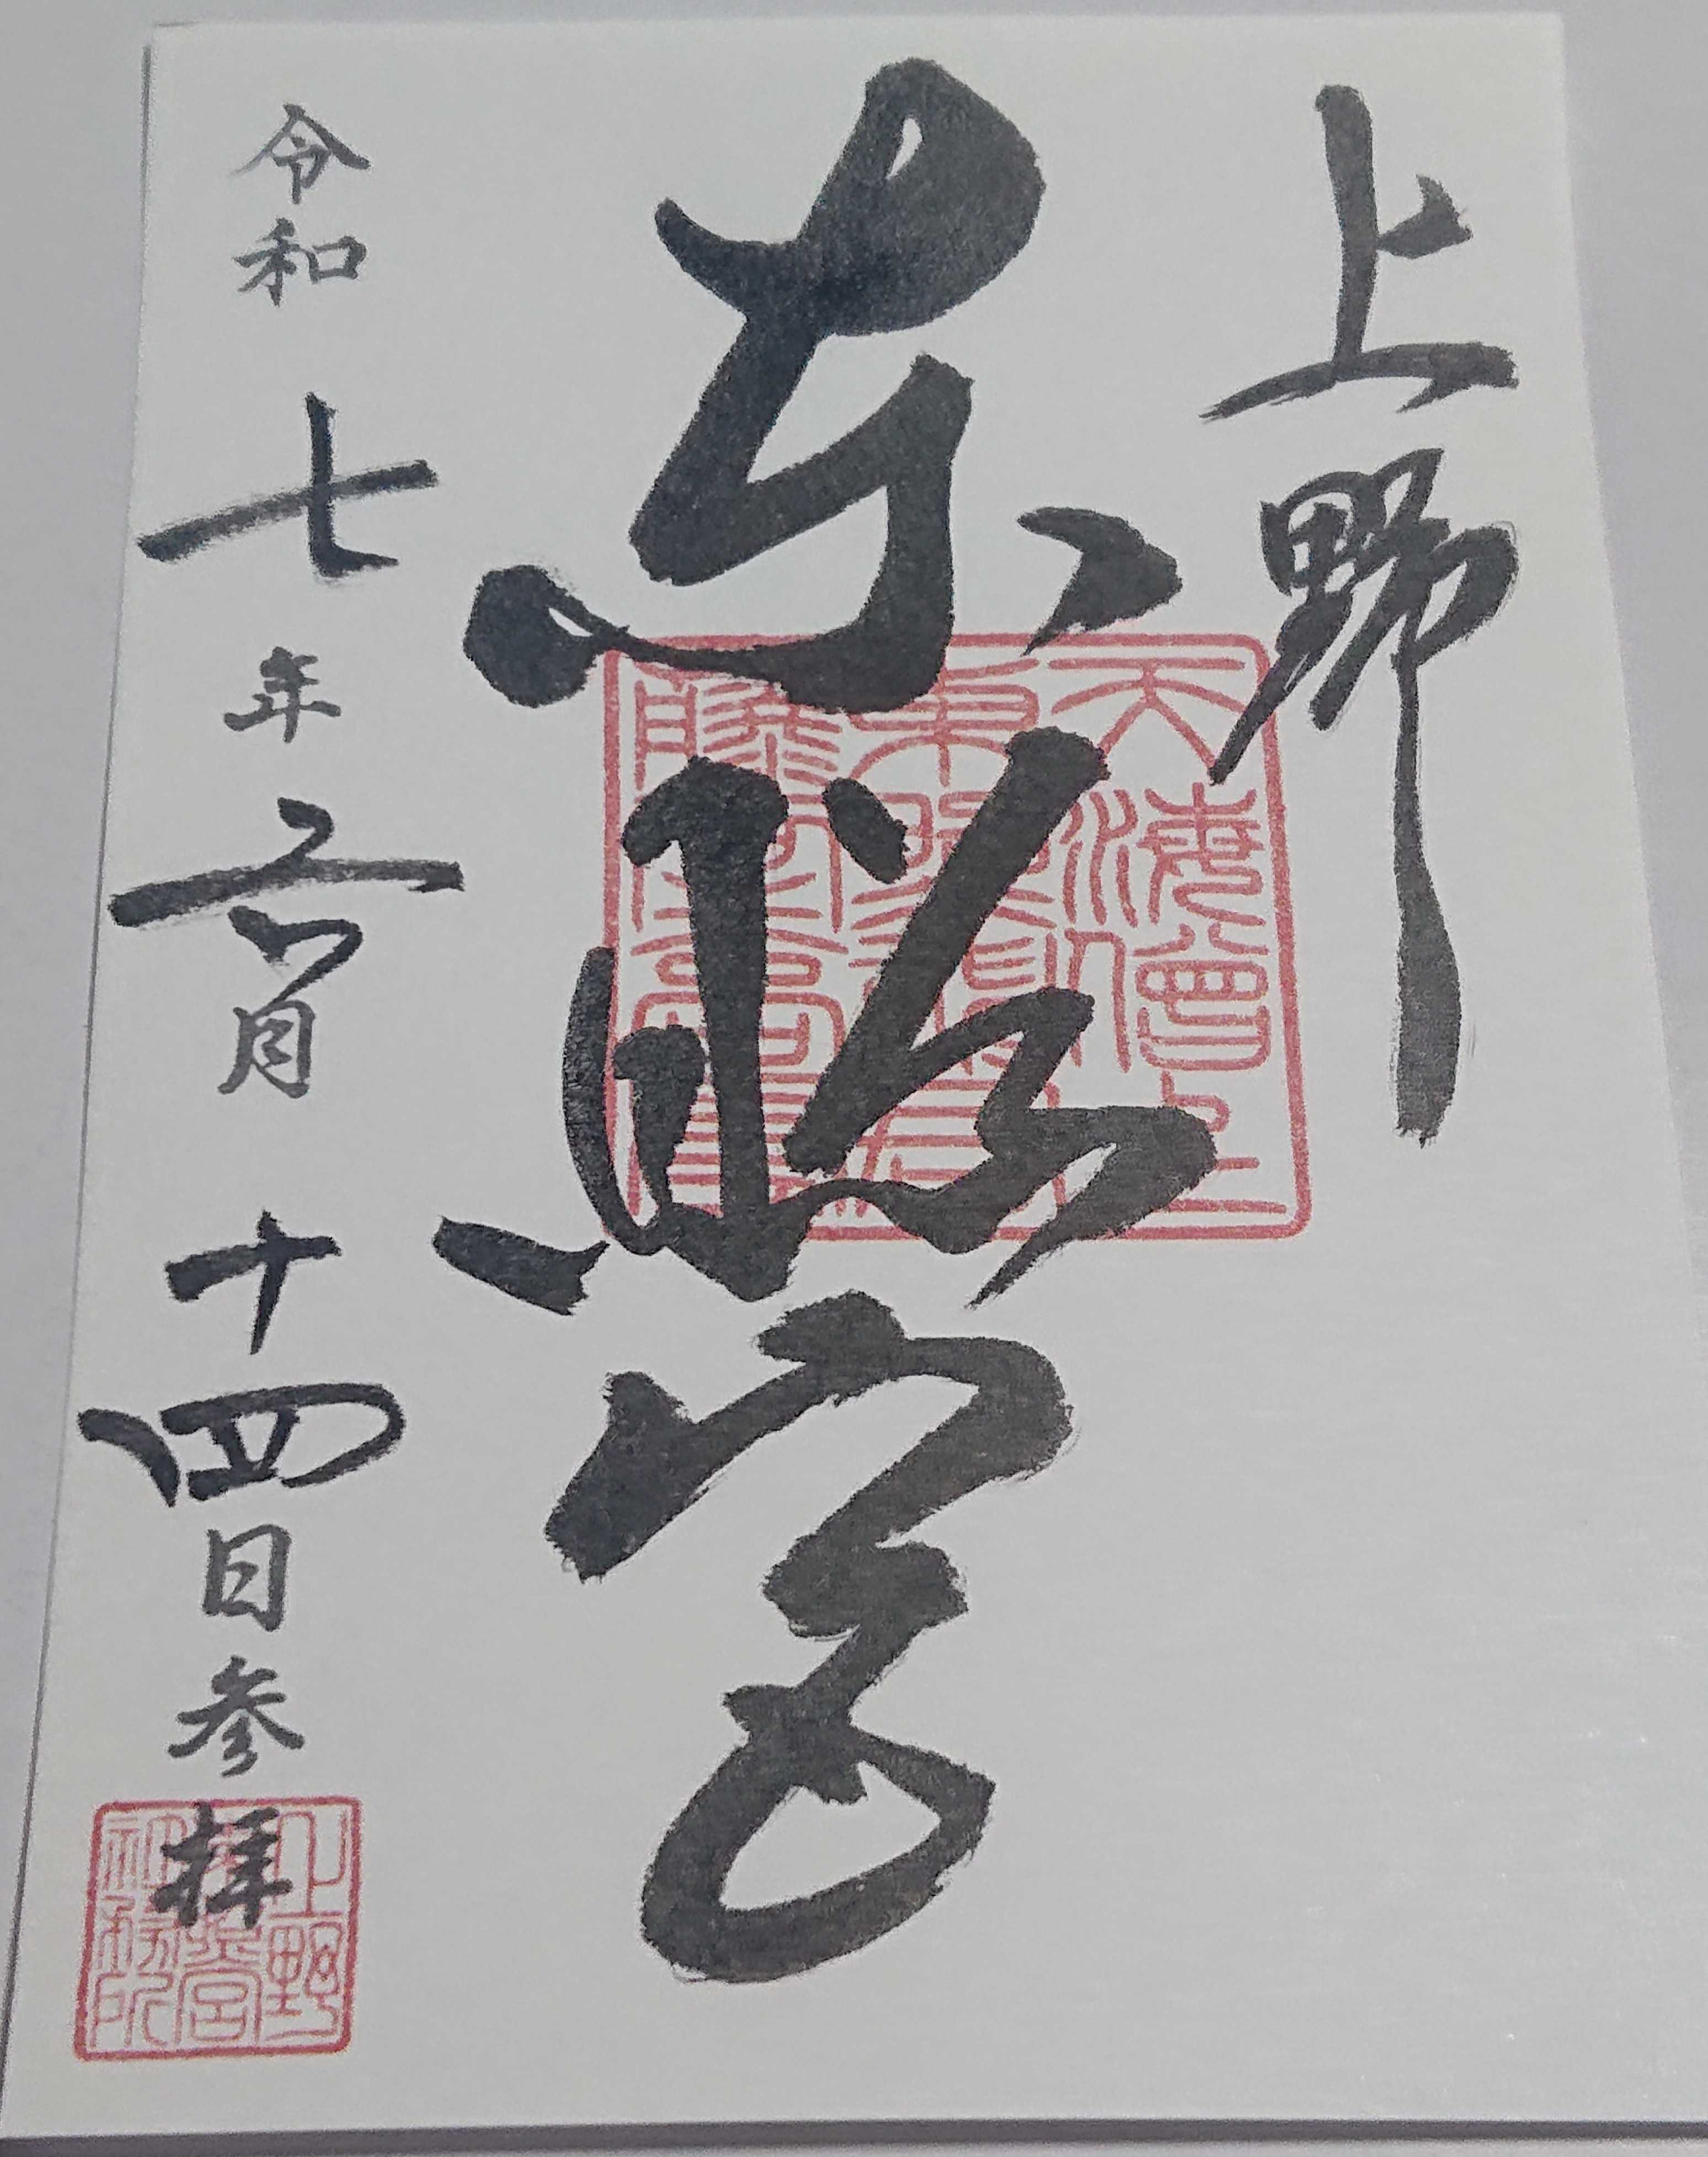 上野
東照宮
令和七年六月十四日参拝
上野
東照宮
社務所